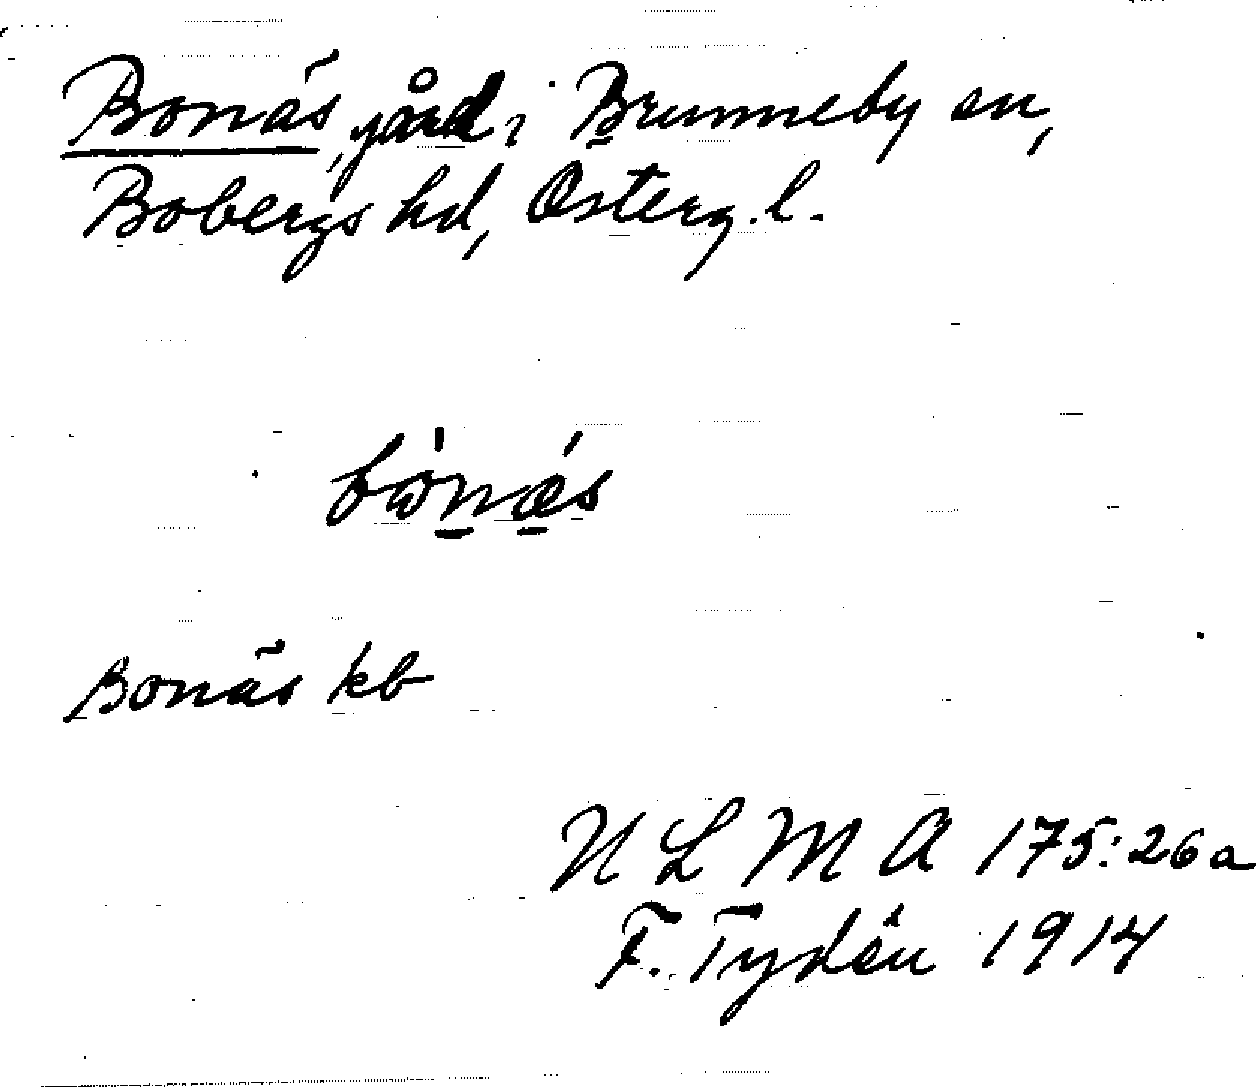 Bonäs, gård i Brunneby sn,
Bobergs hd, Österg. l.
Bonäs kb
ULMA 175:26a
F. Tydén 1914